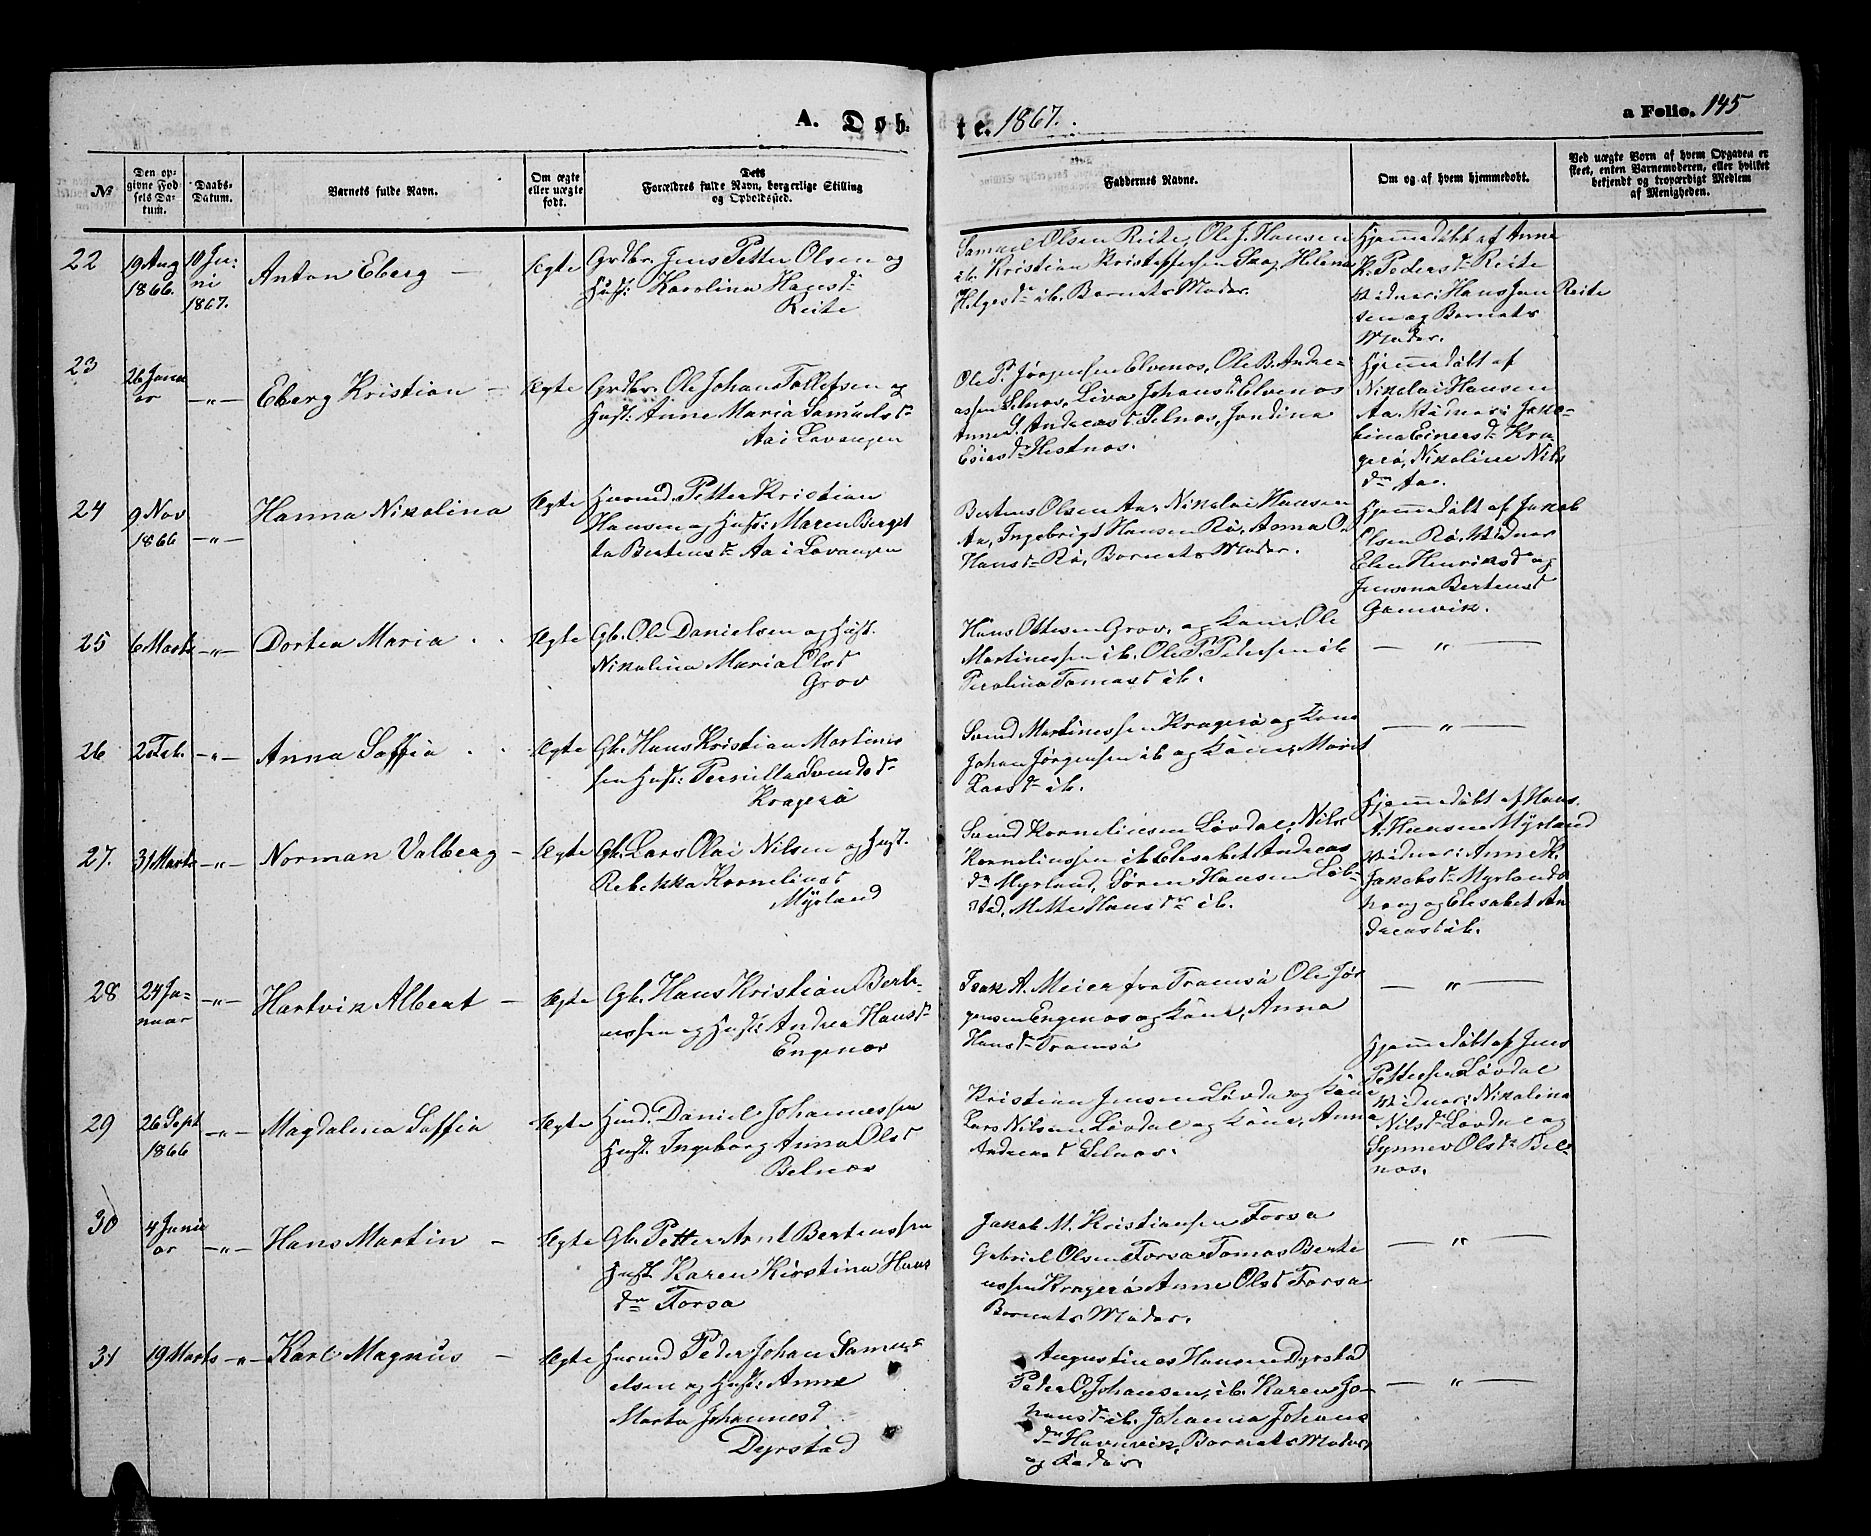 A. Døbte. 1867.
a Folio. 145
No
Den opgivne Fødsels Datum.
Daabs-Datum.
Barnets fulde Navn.
Om ægte eller uægte født.
Dets Forældres fulde Navn, borgerlige Stilling og Opholdssted.
Faddernes Navne.
Om og af hvem hjemmedøbt.
Ved uægte Børn af hvem Opgaven er skeet, enten Barnemoderen, eller hvilket bekjendt og troværdigt Medlem af Menigheden.
22
19 Aug
1866.
10 Ju-
ni
1867.
Anton Eberg —
Ægte
Grdbr. Jens Petter Olsen og
Hust: Karolina Hansdr
Reite
Samuel Olsen Reite, Ole J. Hansen
ib. Kristian Kristoffersen Skog, Helena
Helgesdr ib. Barnets Moder.
Hjemmedøbt af Anne
K. Pedersdr Reite
Vidner: Hans Jen Reite
sen og Barnets
Moder.
23
26 Janu
ar
—"—
Eberg Kristian —
Ægte
Grdbr. Ole Johans Tollefsen og
Hust: Anne Maria Samuelsdr
Aa i Lavangen
Ole P. Jørgensen Elvenos, Ole B. Andre-
assen Selnos, Liva Johansdr Elvenos
Anne S. Andreasdr Selnos, Jondina
Esiasdr Hestnos.
Hjemmedøbt af
Nikolai Hansen
Aa. Vidner: Jako-
bina Einersdr Kra
gerø, Nikoline Nils
dr Aa.
24
9 Nov
1866
—"—
Hanna Nikolina
Ægte
Huusmd. Petter Kristian
Hansen og Hust: Maren Berget
ta Bertensdr Aa i Lavangen
Bertens Olsen Aa, Nikolai Hansen
Aa, Ingebrigt Hansen Rø, Anna O.
Hansdr Rø, Barnets Moder.
Hjemmedøbt af Jakob
Elsen Rø, Vidner
Elen Henriksdr og
Jensena Bertensd
Gamvik.
25
6 Marts
—"—
Dortea Maria . .
Ægte
Gb. Ole Danielsen og Hust.
Nikolina Maria Olsd
Grov
Hans Ottesen Grov, og Kone, Ole
Martinessen ib. Ole P. Pedersen ib
Perolina Tomasd ib.
— " —
26
2 Feb.
—"—
Anna Soffia . .
Ægte
Gb. Hans Kristian Martines
sen Hust: Pernilla Svendsdr
Kragerø
Svend Martinessen Kragerø og Kone
Johan Jørgensen ib og Kone, Marit
Larsdr ib.
— " —
27.
31 Marts
—"—
Norman Valberg —
Ægte
Gb. Lars Olai Nilsen og Hust.
Rebekka Kornelinsd
Myrland
Svend Korneliusen Løvdal, Nils
Korneliussen ib Elisabet Andreas
dr Myrland, Søren Hansen Løb-
stad, Mette Hansdr ib.
Hjemmedøbt af Hans
A. Hansen Myrland
Vidner: Anne K.
Jakobsdr Myrlands
haug og Elisabet An
dreasd ib.
28
24 Ja-
nuar
—"—
Hartvik Albert —
Ægte
Gb. Hans Kristian Berte-
ussen og Hust: Andrea Hansdr
Engenos
Isak A. Meier fra Tromsø Ole Jør
gensen Engenos og Kone, Anna
Hansdr Tromsø
— " —
29
26 Sept
1866
—"—
Magdalena Soffia
Ægte
Husmd. Daniel Johannessen
Hust. Ingeborg Anna Olsd
Selnos
Kristian Jensen Løvdal og Kone
Lars Nilsen Løvdal og Kone, Anna
Andreasd Selnos.
Hjemmedøbt af Jens
Pettersen Løvdal
Vidner: Nikolina
Nilsdr Løvdal og
Synnev Olsdr Sel-
nos.
30
4 Janu
ar
—"—
Hans Martin —
Ægte
Gb. Petter Arnt Bertenssen
Hust. Karen Kirstina Hans
dr Forsa
Jakob M. Kristiansen Forsa
Gabriel Olsen Forsa Tomas Berte
ussen Kragerø Anne Olsd Forsa
Barnets Moder.
— " —
31
19 Marts
—"—
Karl Magnus —
Ægte
Husmd Peder Johan Samu-
elsen og Hust: Anne
Marta Johannesd.
Dyrstad
Augustines Hansen Dyrstad
Peder O. Johansen, ib. Karen Jo-
hansdr ib. Johanna Johans
dr Havnvik, Barnets Moder
og Fader.
— " —